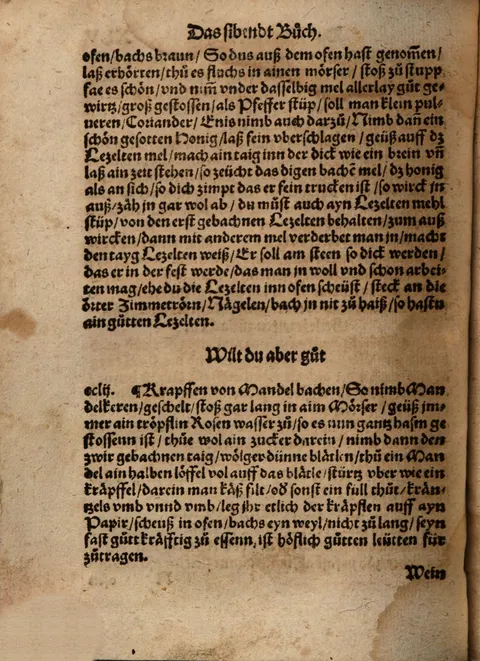 Das sibendt Bůch.
ofen/bachs braun/So dus auß dem ofen hast genom̃en/
laß erhörren/thů es fluchs in ainen mörser/stoß zů stupp
fae es schön/vnd nim̃ vnder dasselbig mel allerlay gůt ge⸗
wirtz/groß gestossen/als Pfeffer stüp/soll man klein pul⸗
ueren/Coriander/Enis nimb auch darzů/Nimb dañ ein
schön gesotten Honig/laß fein vberschlagen/geüß auff dz
Lezelten mel/mach ain taig inn der dick wie ein brein vñ
laß ain zeit stehen/so zeücht das digen bachẽ mel/dz honig
als an sich/so dich zimpt das er fein trucken ist/so wirck jn
auß/zäh jn gar wol ab/du můst auch ayn Lezelten mehl
stüp/von den erst gebachnen Lezelten behalten/zum auß
wircken/dann mit anderem mel verderbet man jn/macht
den tayg Lezelten weiß/Er soll am steen so dick werden/
das er in der fest werde/das man jn woll vnd schon arbei⸗
ten mag/ehe du die Lezelten inn ofen scheüst/steck an die
örter Zimmetrörn/Nägelen/bach jn nit zů haiß/so hastu
ain gůtten Lezelten.
Wilt du aber gůt
cclij. ¶Krapffen von Mandel bachen/So nimb Man
delkeren/geschelt/stoß gar lang in aim Mörser/geüß jm⸗
mer ain tröpflin Rosen wasser zů/so es nun gantz hasm ge
stossenn ist/thůe wol ain zucker darein/nimb dann den
zwir gebachnen taig/wölger dünne blätlen/thů ein Man
del ain halben löffel vol auff das blätle/stürtz vber wie ein
kräpffel/darein man käß filt/oď sonst ein full thůt/krän⸗
tzels vmb vnnd vmb/leg jhr etlich der kräpflen auff ayn
Papir/scheuß in ofen/bachs eyn weyl/nicht zů lang/seyn
fast gůtt kräfftig zů essenn, ist höflich gůtten leütten für
zůtragen.
Wein